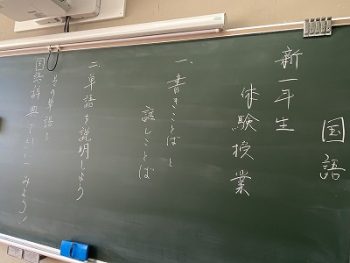 国語
新一年生
体験授業
一、書きことばと
話しことば
二、単語を説明しよう
その単語を
国語辞典で引いてみよう！